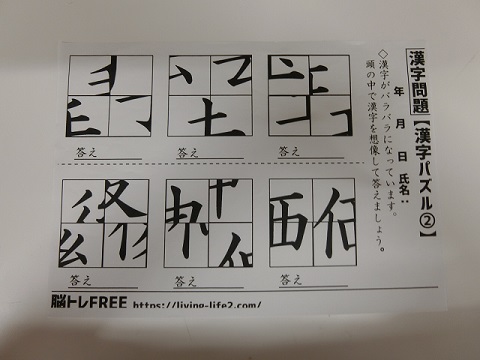 漢字問題【漢字パズル②】
年　月　日 氏名：
◇漢字がバラバラになっています。
頭の中で漢字を想像して答えましょう。
答え
答え
答え
答え
答え
答え
脳トレFREE https://living-life2.com/